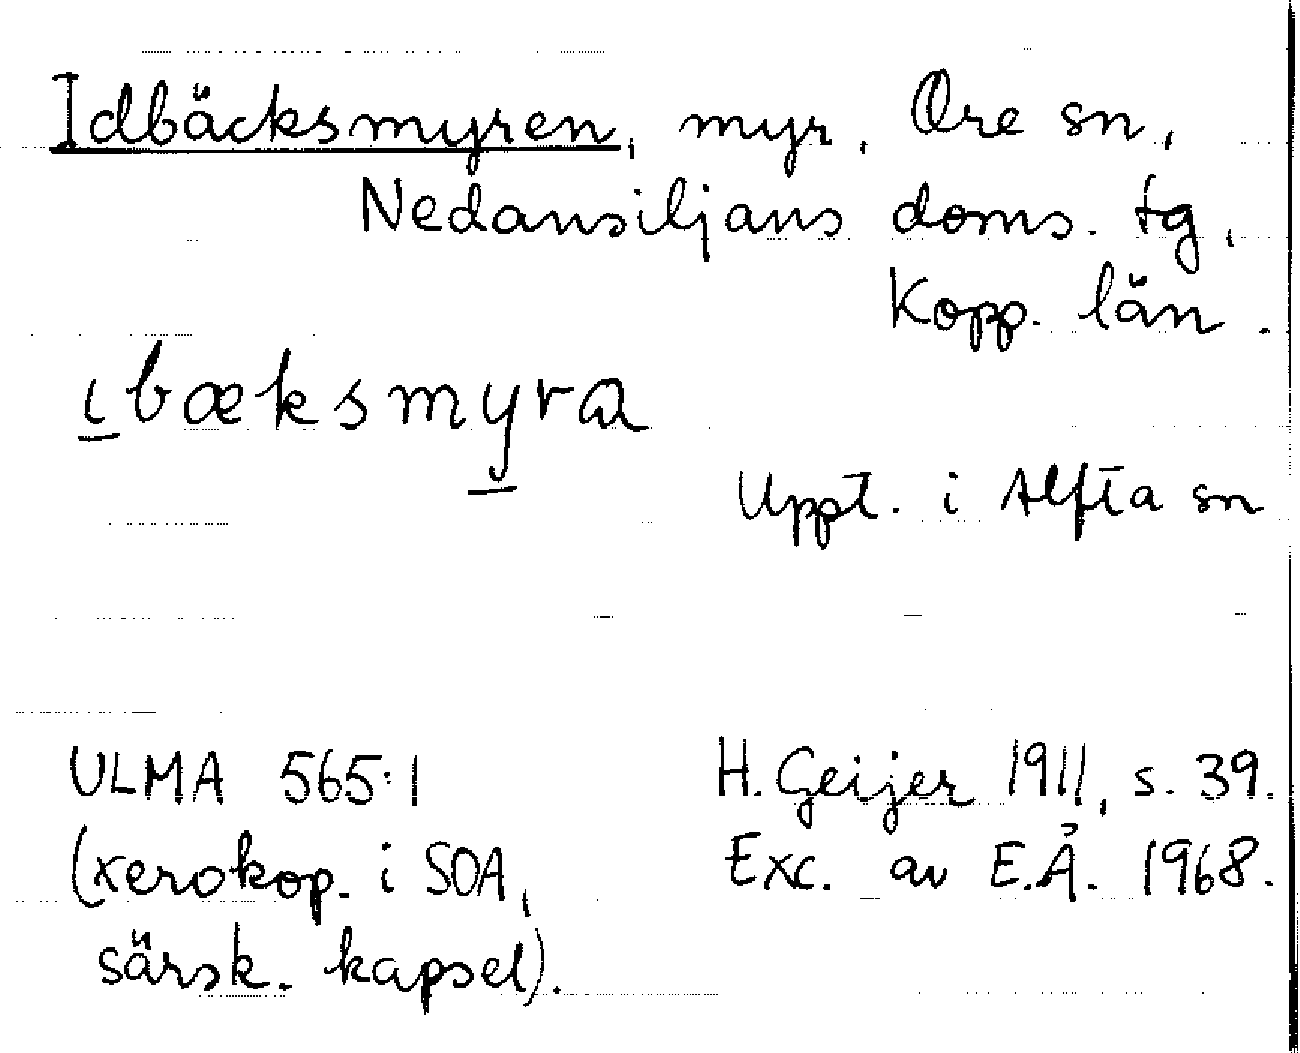 Idbäcksmyren, myr, Ore sn,
Nedansiljans doms. tg,
Kopp. län.
ıbæksmyra
Uppt. i Alfta sn
ULMA 565:1 H. Geijer 1911, s. 39.
(xerokop. i SOA, Exc. av E.Å. 1968.
särsk. kapsel).